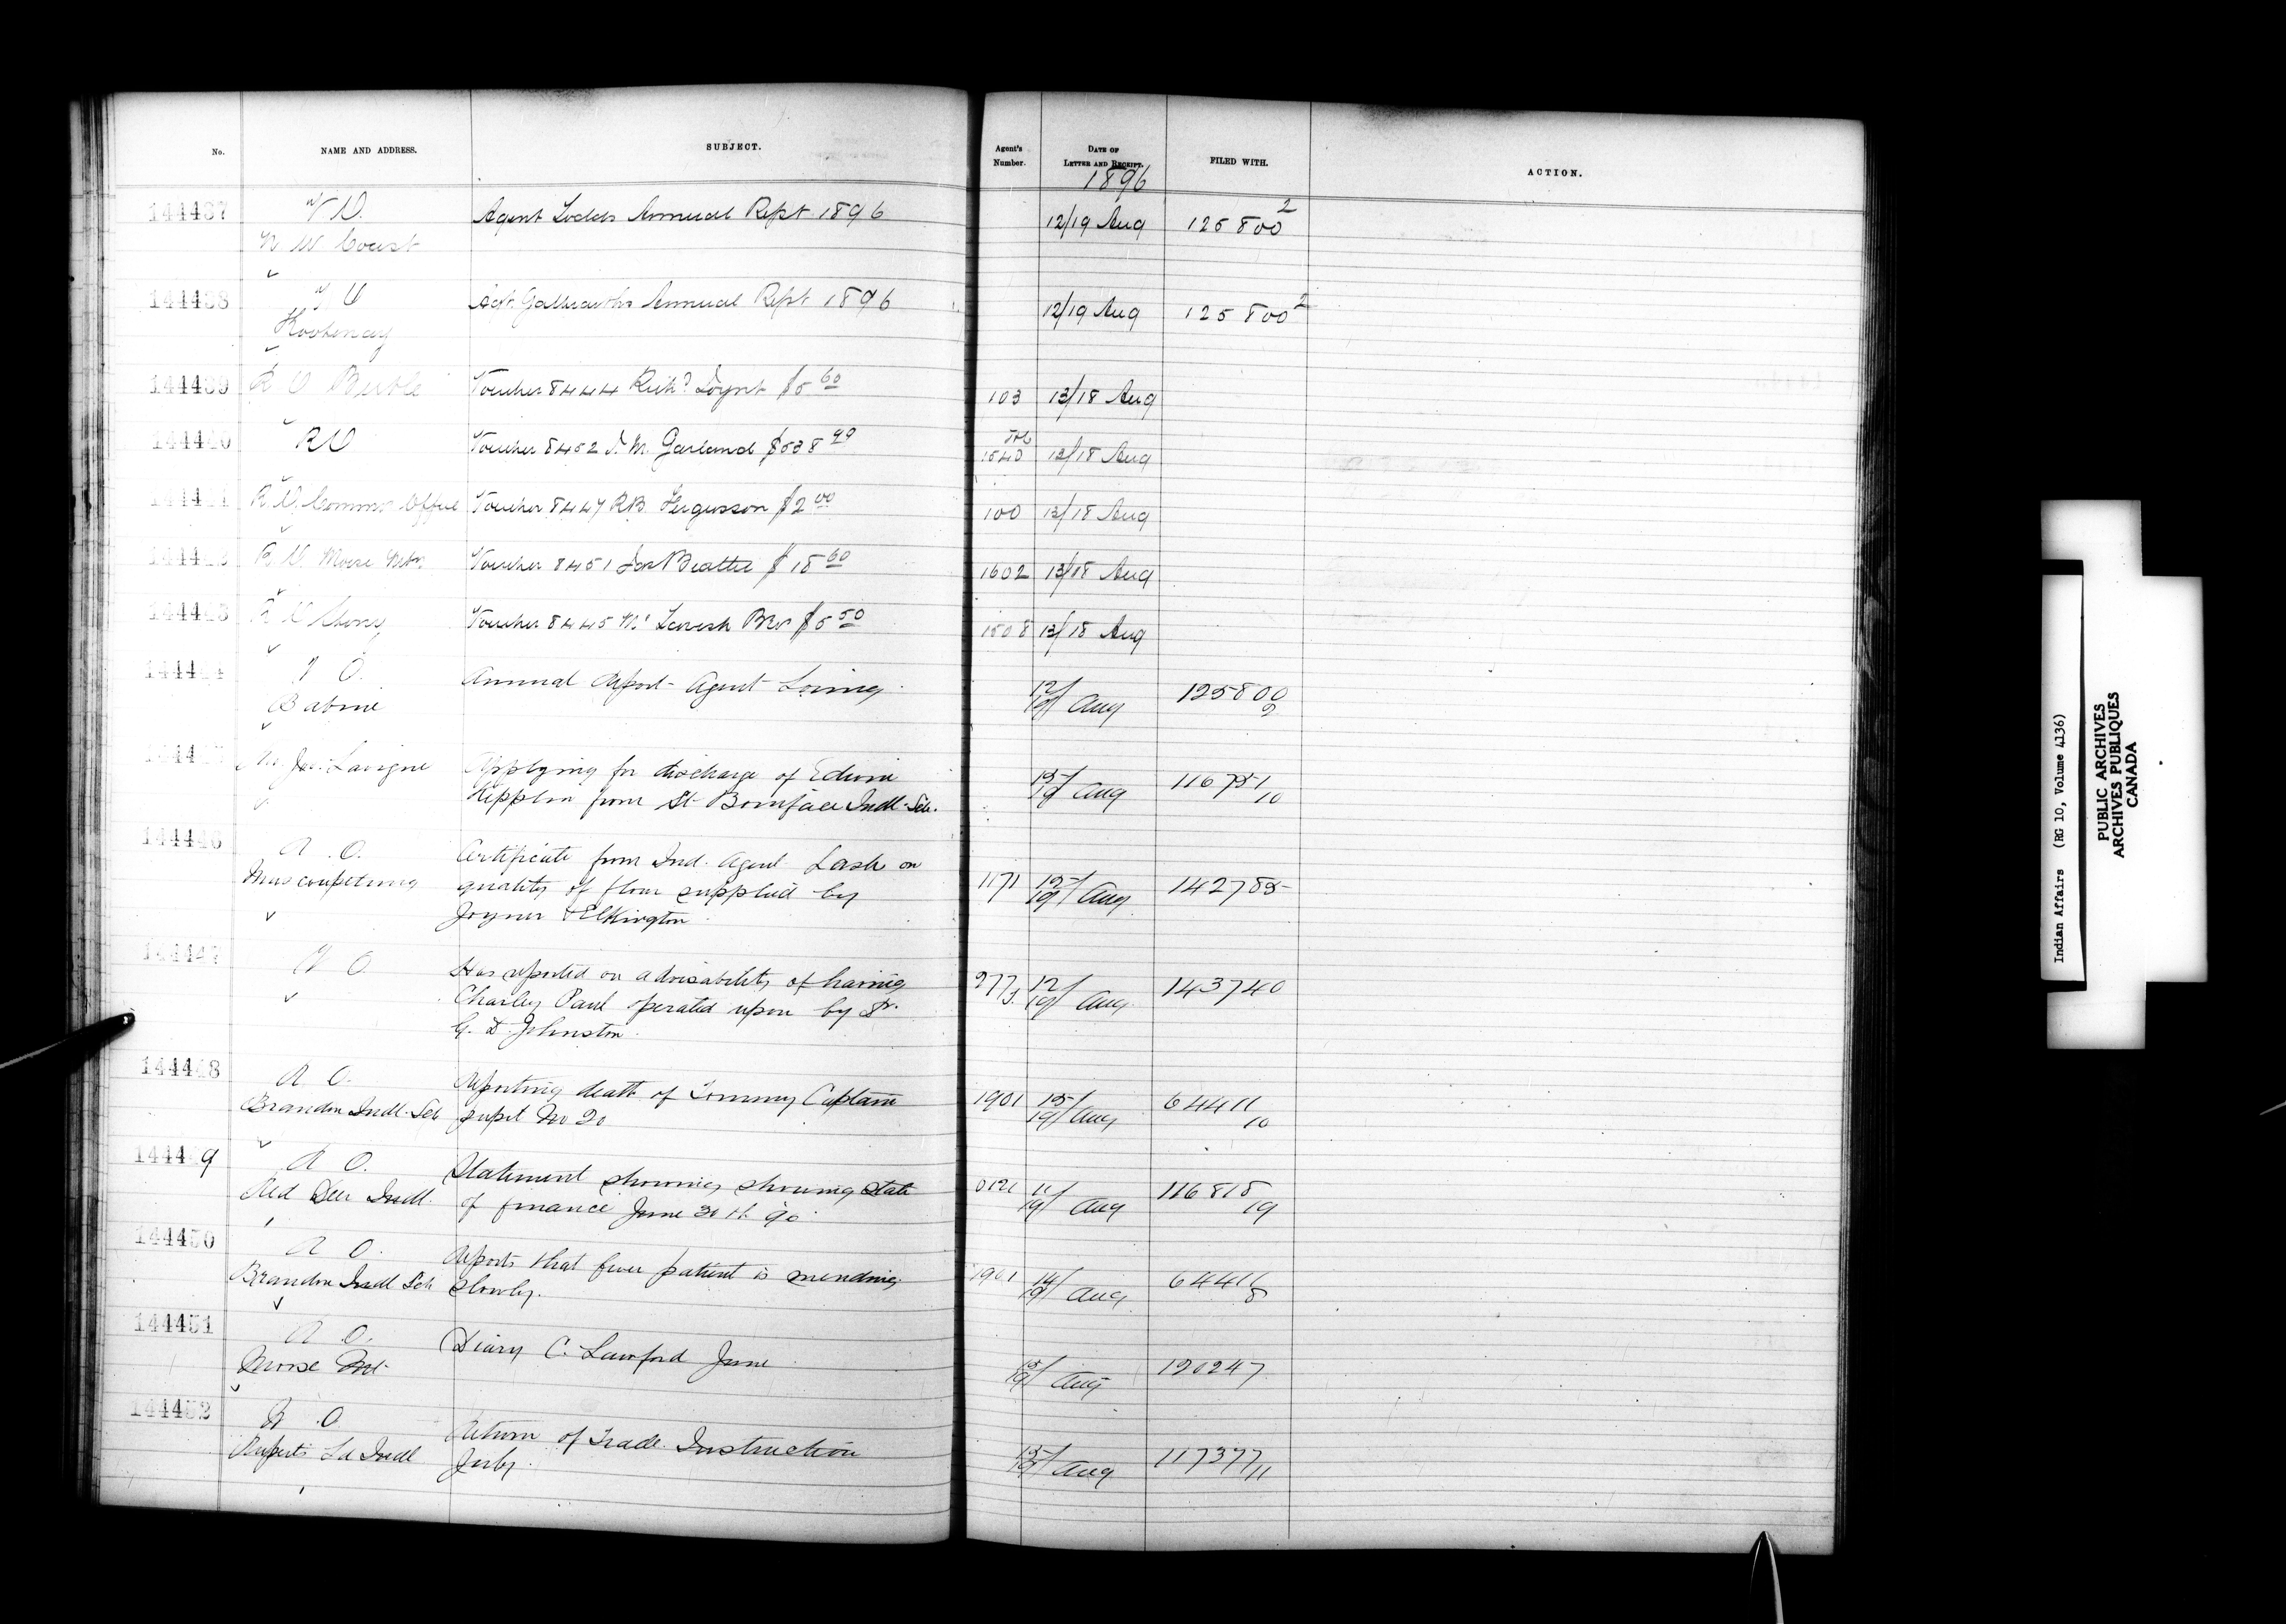 No. NAME AND ADDRESS. SUBJECT. Agent's Number. DATE OF LETTER AND RECEIPT. FILED WITH. ACTION.
1896
144437 V O. Agent Todds Annual Rept 1896 12/19 Aug 125800 2
N. W. Coast
144438 V O Agt. Galbraiths Annual Rept 1896 12/19 Aug 125800 2
Kootenay
144439 R O Birtle Voucher 8444 Richd $5 60 103 13/18 Aug
144440 R O Voucher 8452 J. M. Garland $538 1540 13/18 Aug
144441 R O Commrs Office Voucher 8447 R B. Fergusson $2 00 100 13/18 Aug
R O Moose Mtn Voucher 8451 Jas Beattie $ 18 60 1602 13/18 Aug
144443 R O Voucher 8445 Bros $5 50 1508 13/18 Aug
V O. Annual Report Agent Loring 12/19 Aug 125800 2
Babine
Jos. Lavigne Applying for discharge of Edwin 15/19 Aug 116751 10
from St Boniface Indl. Sch.
144446 R. O. Certificate from Ind. Agent Lash on
Muscowpetung quality of flour supplied by 1171 15/19 Aug 142785
Joyner & Elkington
144447 V O Has reported on advisability of having 277 J. 12/19 Aug 143740
Charley Paul operated upon by Dr.
G. D. Johnston.
144448 R O. Reporting death of Tommy Captain 1901 15/19 Aug 64411 10
Brandon Indl. Sch pupil No 20
144449 R O. Statement showing showing state 11/19 Aug 116818 19
Red Deer Indl. of finance June 30th 96
144450 R O. Reports that fever patient is mending 1901 14/19 Aug 64411 8
Brandon Indl Sch slowly.
144451 R O. Diary C. Lawford June 15/19 Aug 120247
Moose Mt
144452 R O. Return of Trade Instruction 15/19 Aug 117377/11
Ruperts Ld Indl July.
Indian Affairs (RG 10, Volume 4136)
PUBLIC ARCHIVES
ARCHIVES PUBLIQUES
CANADA